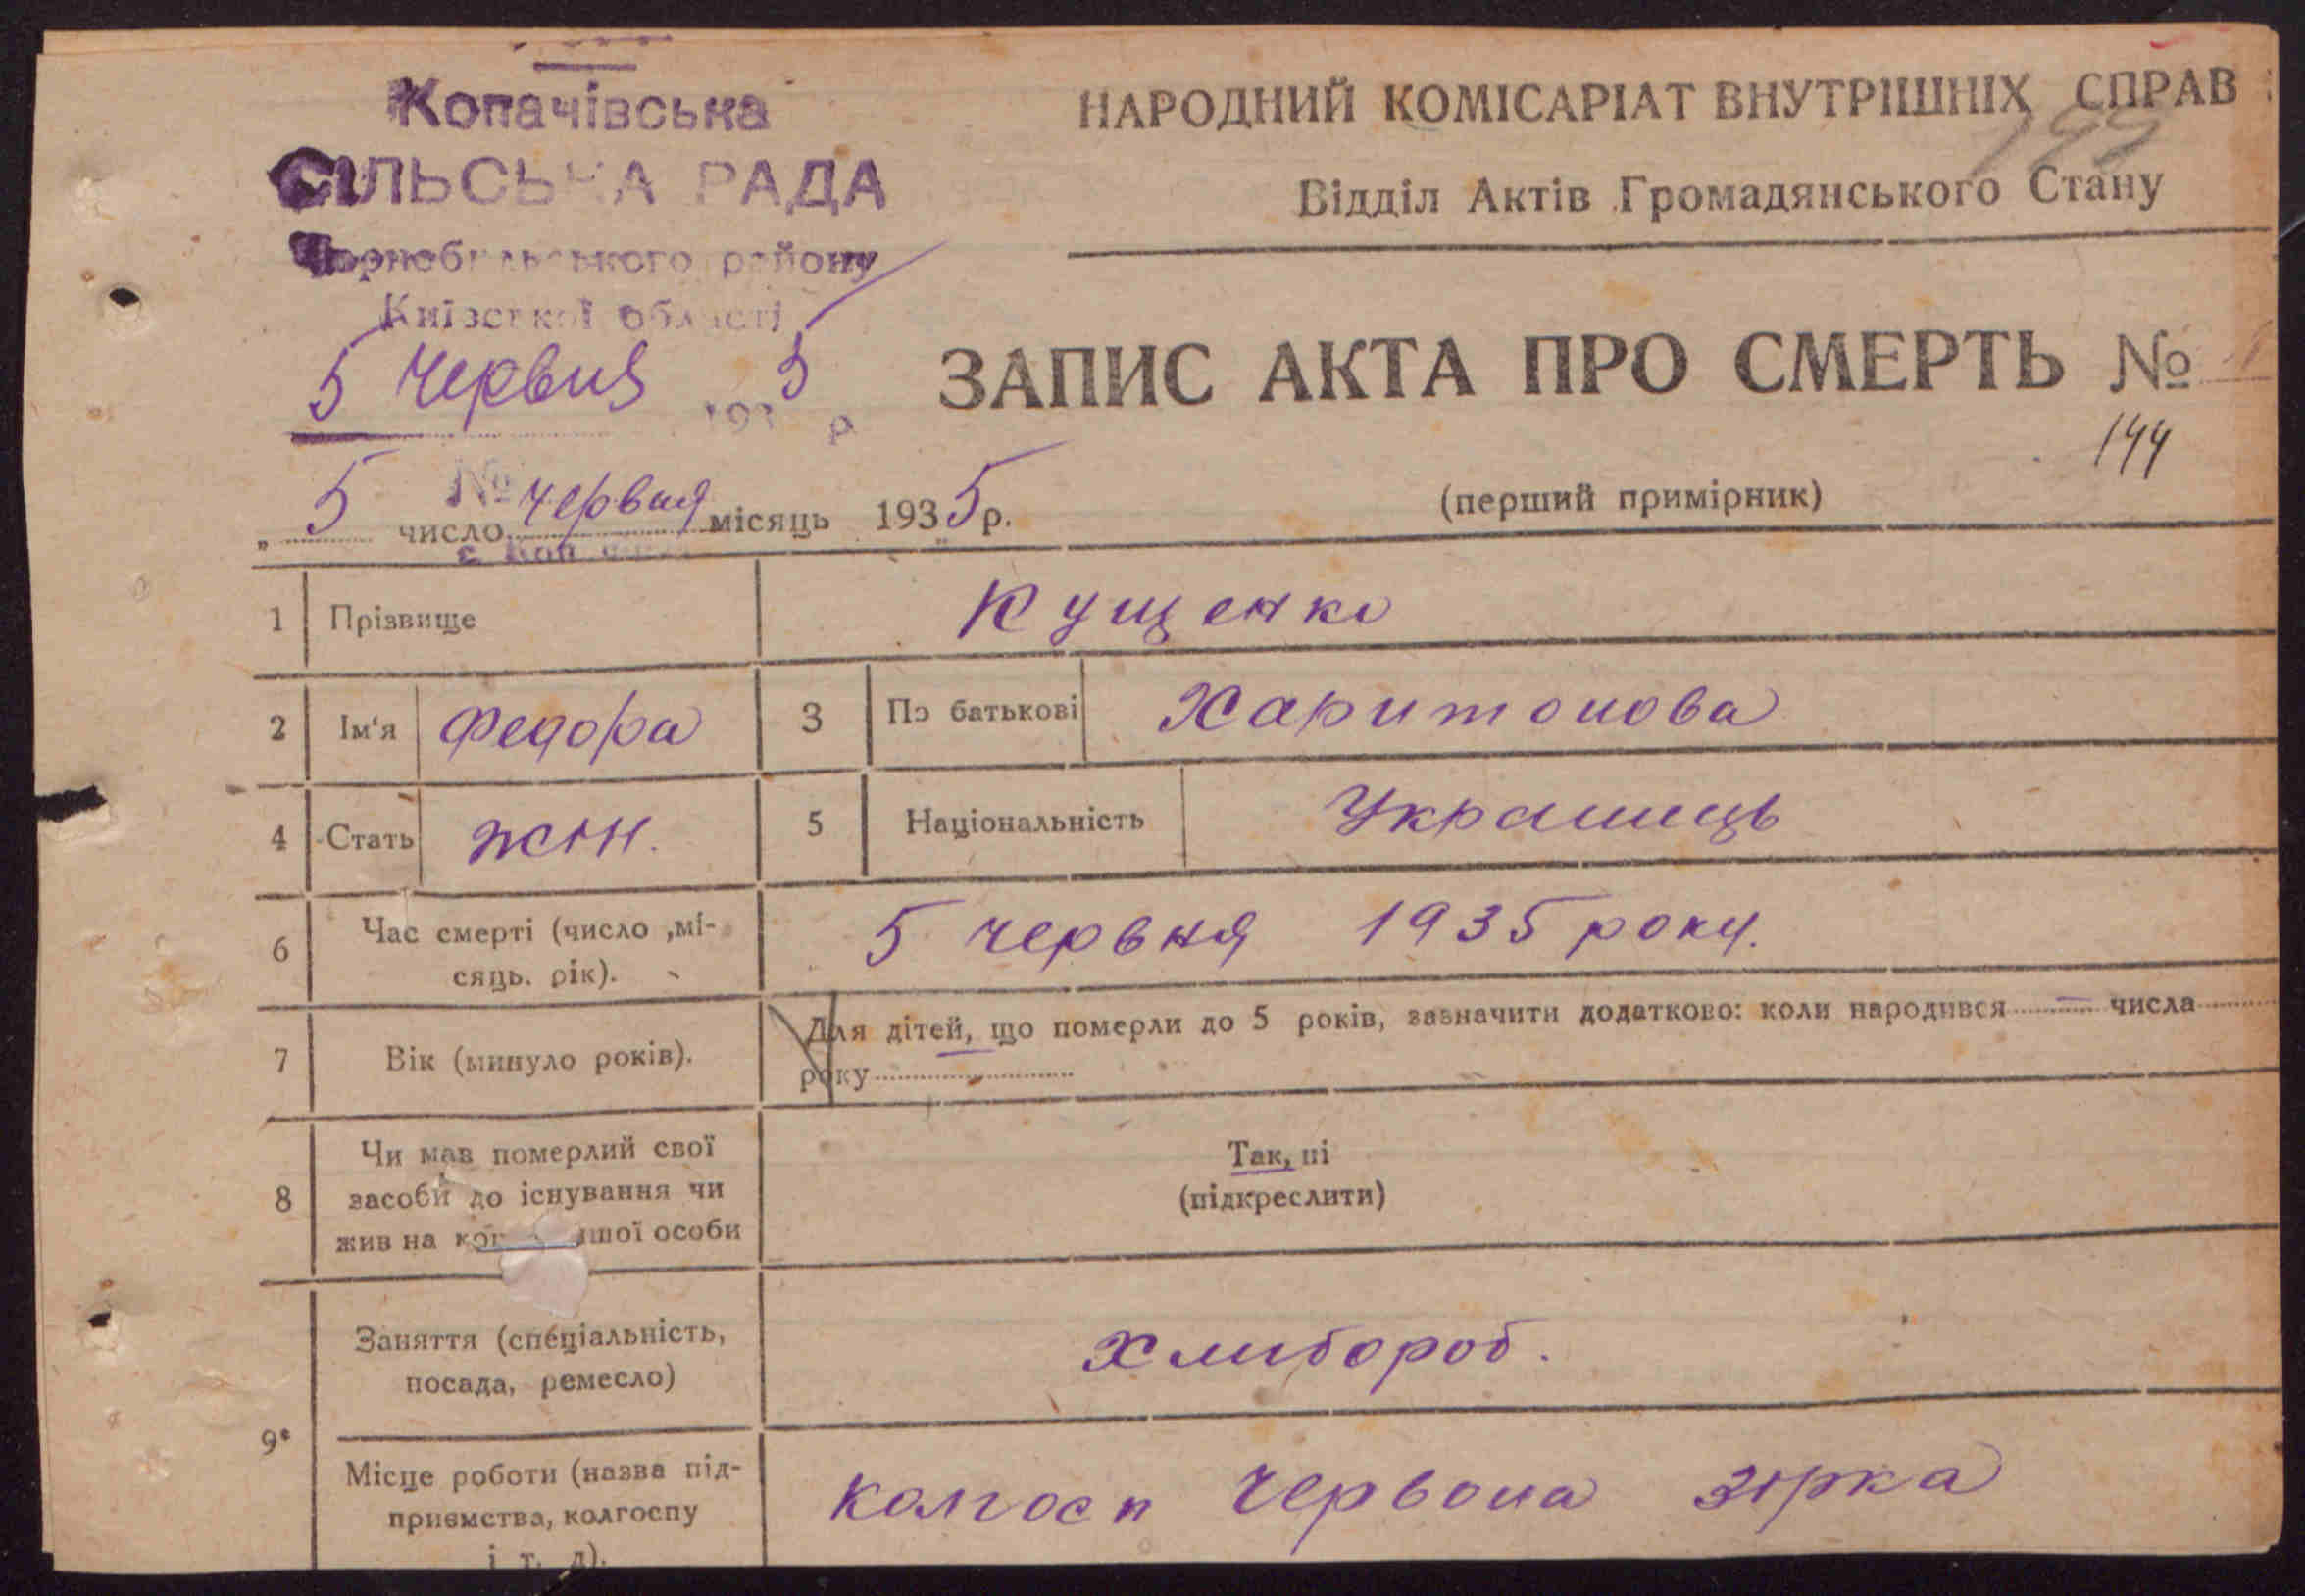 Копачівська
СІЛЬСЬКА РАДА
Чорнобильського району
Київської області
5 Червня 1935 р
№
НАРОДНИЙ КОМІСАРІАТ ВНУТРІШНІХ СПРАВ
199
Відділ Актів Громадянського Стану
ЗАПИС АКТА ПРО СМЕРТЬ №
144
(перший примірник)
„ 5 число червня місяць 1935 р.
1 Прізвище Кущенко
2 Ім'я Федора 3 По батькові Харитонова
4 Стать жін. 5 Національність Украинець
6 Час смерті (число ,мі-
сяць. рік). 5 червня 1935 року.
7 Вік (минуло років). Для дітей, що померли до 5 років, зазначити додатково: коли народився числа
року
8 Чи мав померлий свої
засоби до існування чи
жив на кош іншої особи
Так, ні
(підкреслити)
9*
Заняття (спеціальність,
посада, ремесло) Хлибороб.
Місце роботи (назва під-
приємства, колгоспу
і т. д). колгосп Червона зірка